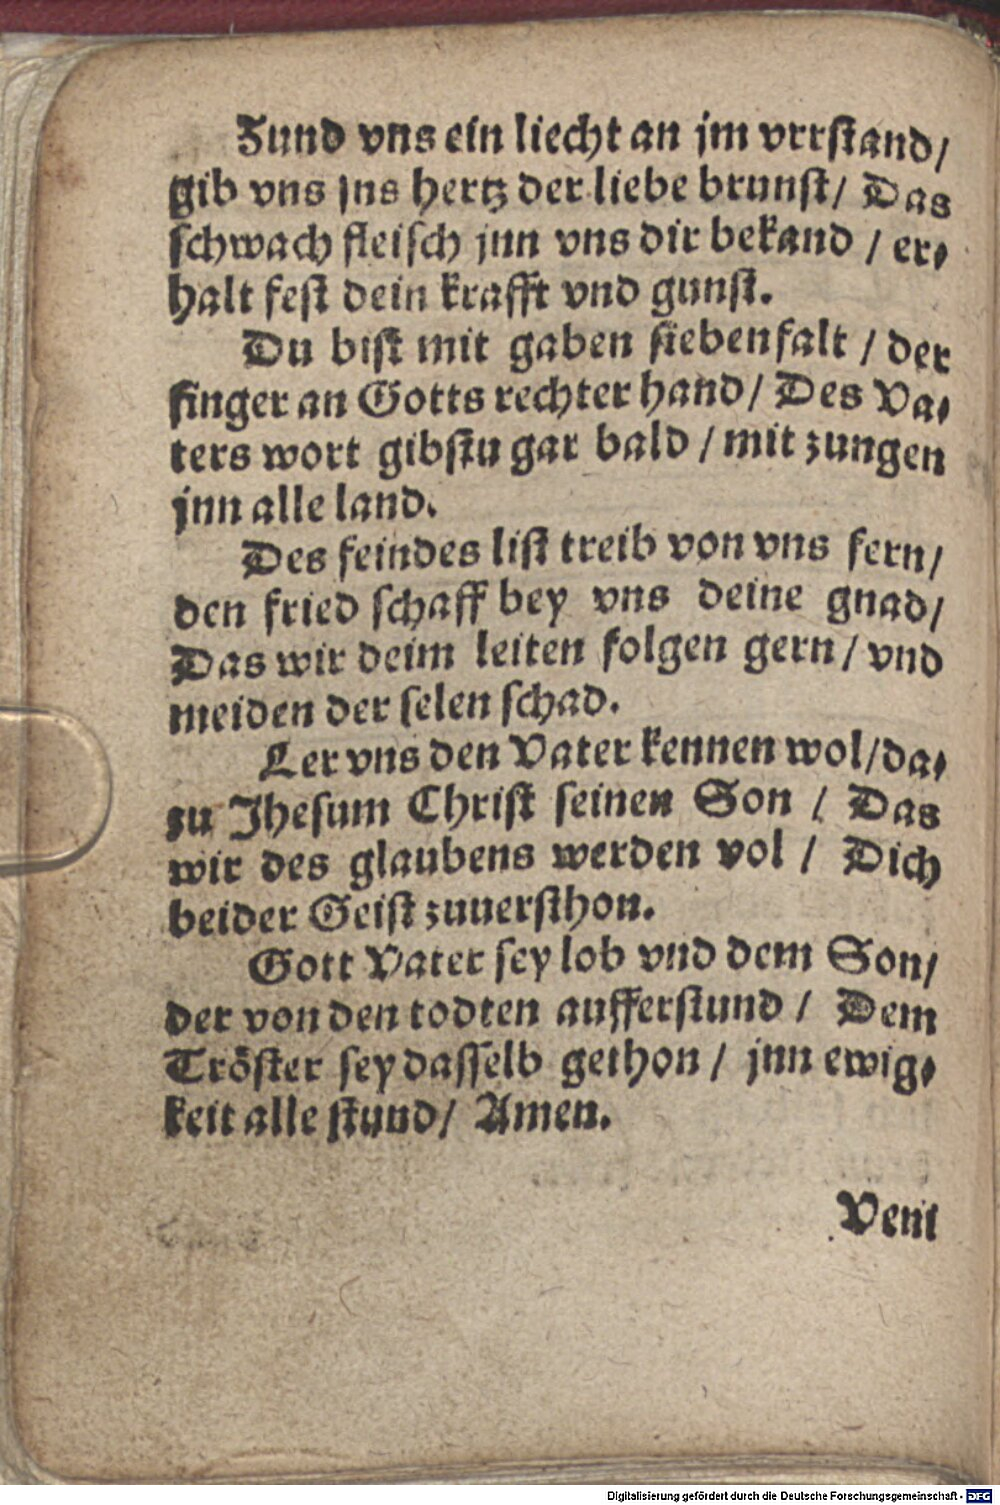 Zund vns ein liecht an jm vrrstand/
gib vns jns hertz der liebe brunst/ Das
schwach fleisch jnn vns dir bekand / er-
halt fest dein krafft vnd gunst.
Du bist mit gaben siebenfalt / der
finger an Gotts rechter hand/ Des Va-
ters wort gibstu gar bald / mit zungen
jnn alle land.
Des feindes list treib von vns fern/
den fried schaff bey vns deine gnad/
Das wir deim leiten folgen gern/ vnd
meiden der selen schad.
Ler vns den Vater kennen wol/da-
zu Jhesum Christ seinen Son / Das
wir des glaubens werden vol / Dich
beider Geist zuuersthon.
Gott Vater sey lob vnd dem Son/
der von den todten aufferstund / Dem
Tröster sey dasselb gethon / jnn ewig-
keit alle stund/ Amen.
Veni
Digitalisierung gefördert durch die Deutsche Forschungsgemeinschaft - DFG